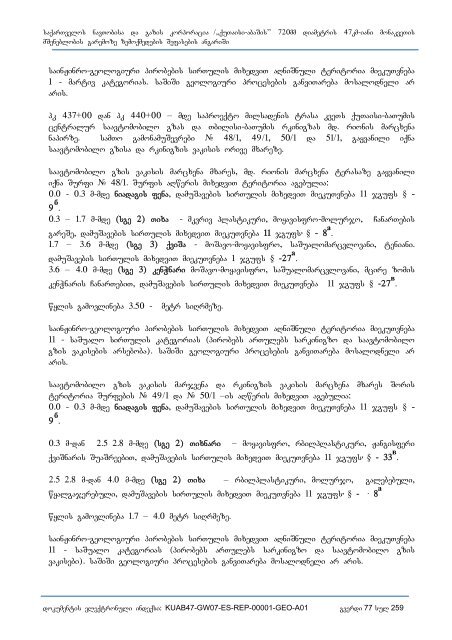 საქართველოს ნავთობისა და გაზის კორპორაცია /„ქუთაისი-აბაშის" 720მმ დიამეტრის 47კმ-იანი მონაკვეთის
მშენებლობის გარემოზე ზემოქმედების შეფასების ანგარიში
საინჟინრო-გეოლოგიური პირობების სირთულის მიხედვით აღნიშნული ტერიტორია მიეკუთვნება
1 - მარტივ კატეგორიას. საშიში გეოლოგიური პროცესების განვითარება მოსალოდნელი არ
არის.
პკ 437+00 დან პკ 440+00 – მდე საპროექტო მილსადენის ტრასა კვეთს ქუთაისი-ბათუმის
ცენტრალურ საავტომობილო გზას და თბილისი-ბათუმის რკინიგზას მდ. რიონის მარცხენა
ნაპირზე. სამთო გამონამუშევრები № 48/1, 49/1, 50/1 და 51/1, გაყვანილი იქნა
საავტომობილო გზისა და რკინიგზის ვაკისის ორივე მხარეზე.
საავტომობილო გზის ვაკისის მარცხენა მხარეს, მდ. რიონის მარცხენა ტერასაზე გაყვანილი
იქნა შურფი № 48/1. შურფის აღწერის მიხედვით ტერიტორია აგებულია:
0.0 - 0.3 მ-მდე ნიადაგის ფენა, დამუშავების სირთულის მიხედვით მიეკუთვნება 11 ჯგუფს § -
9ბ.
0.3 – 1.7 მ-მდე (სგე 2) თიხა - მკვრივ პლასტიკური, მოყავისფრო-მოლურჯო, ჩანართების
გარეშე, დამუშავების სირთულის მიხედვით მიეკუთვნება 11 ჯგუფს § - 8ა.
1.7 – 3.6 მ-მდე (სგე 3) ქვიშა - მოშავო-მოყავისფრო, საშუალომარცვლოვანი, ტენიანი.
დამუშავების სირთულის მიხედვით მიეკუთვნება 1 ჯგუფს § -27ა.
3.6 – 4.0 მ-მდე (სგე 3) კენჭნარი მოშავო-მოყავისფრო, საშუალომარცვლოვანი, მცირე ზომის
კენჭნარის ჩანართებით, დამუშავების სირთულის მიხედვით მიეკუთვნება 11 ჯგუფს § -27ბ.
წყლის გამოვლინება 3.50 - მეტრ სიღრმეზე.
საინჟინრო-გეოლოგიური პირობების სირთულის მიხედვით აღნიშნული ტერიტორია მიეკუთვნება
11 - საშუალო სირთულის კატეგორიას (პირობებს ართულებს სარკინიგზო და საავტომობილო
გზის ვაკისების არსებობა). საშიში გეოლოგიური პროცესების განვითარება მოსალოდნელი არ
არის.
საავტომობილო გზის ვაკისის მარჯვენა და რკინიგზის ვაკისის მარცხენა მხარეს შორის
ტერიტორია შურფების № 49/1 და № 50/1 –ის აღწერის მიხედვით აგებულია:
0.0 - 0.3 მ-მდე ნიადაგის ფენა, დამუშავების სირთულის მიხედვით მიეკუთვნება 11 ჯგუფს § -
9ბ.
0.3 მ-დან 2.5 2.8 მ-მდე (სგე 2) თიხნარი – მოყავისფრო, რბილპლასტიკური, ჟანგისფერი
ქვიშნარის შუაშრეებით, დამუშავების სირთულის მიხედვით მიეკუთვნება 11 ჯგუფს § - 33ბ.
2.5 2.8 მ-დან 4.0 მ-მდე (სგე 2) თიხა – რბილპლასტიკური, მოლურჯო, გალებებული,
წყალგაჯერებული, დამუშავების სირთულის მიხედვით მიეკუთვნება 11 ჯგუფს § - 8ა
წყლის გამოვლინება 1.7 – 4.0 მეტრ სიღრმეზე.
საინჟინრო-გეოლოგიური პირობების სირთულის მიხედვით აღნიშნული ტერიტორია მიეკუთვნება
11 - საშუალო კატეგორიას (პირობებს ართულებს სარკინიგზო და საავტომობილო გზის
ვაკისები). საშიში გეოლოგიური პროცესების განვითარება მოსალოდნელი არ არის.
დოკუმენტის ელექტრონული ინდექსი: KUAB47-GW07-ES-REP-00001-GEO-A01 გვერდი 77 სულ 259